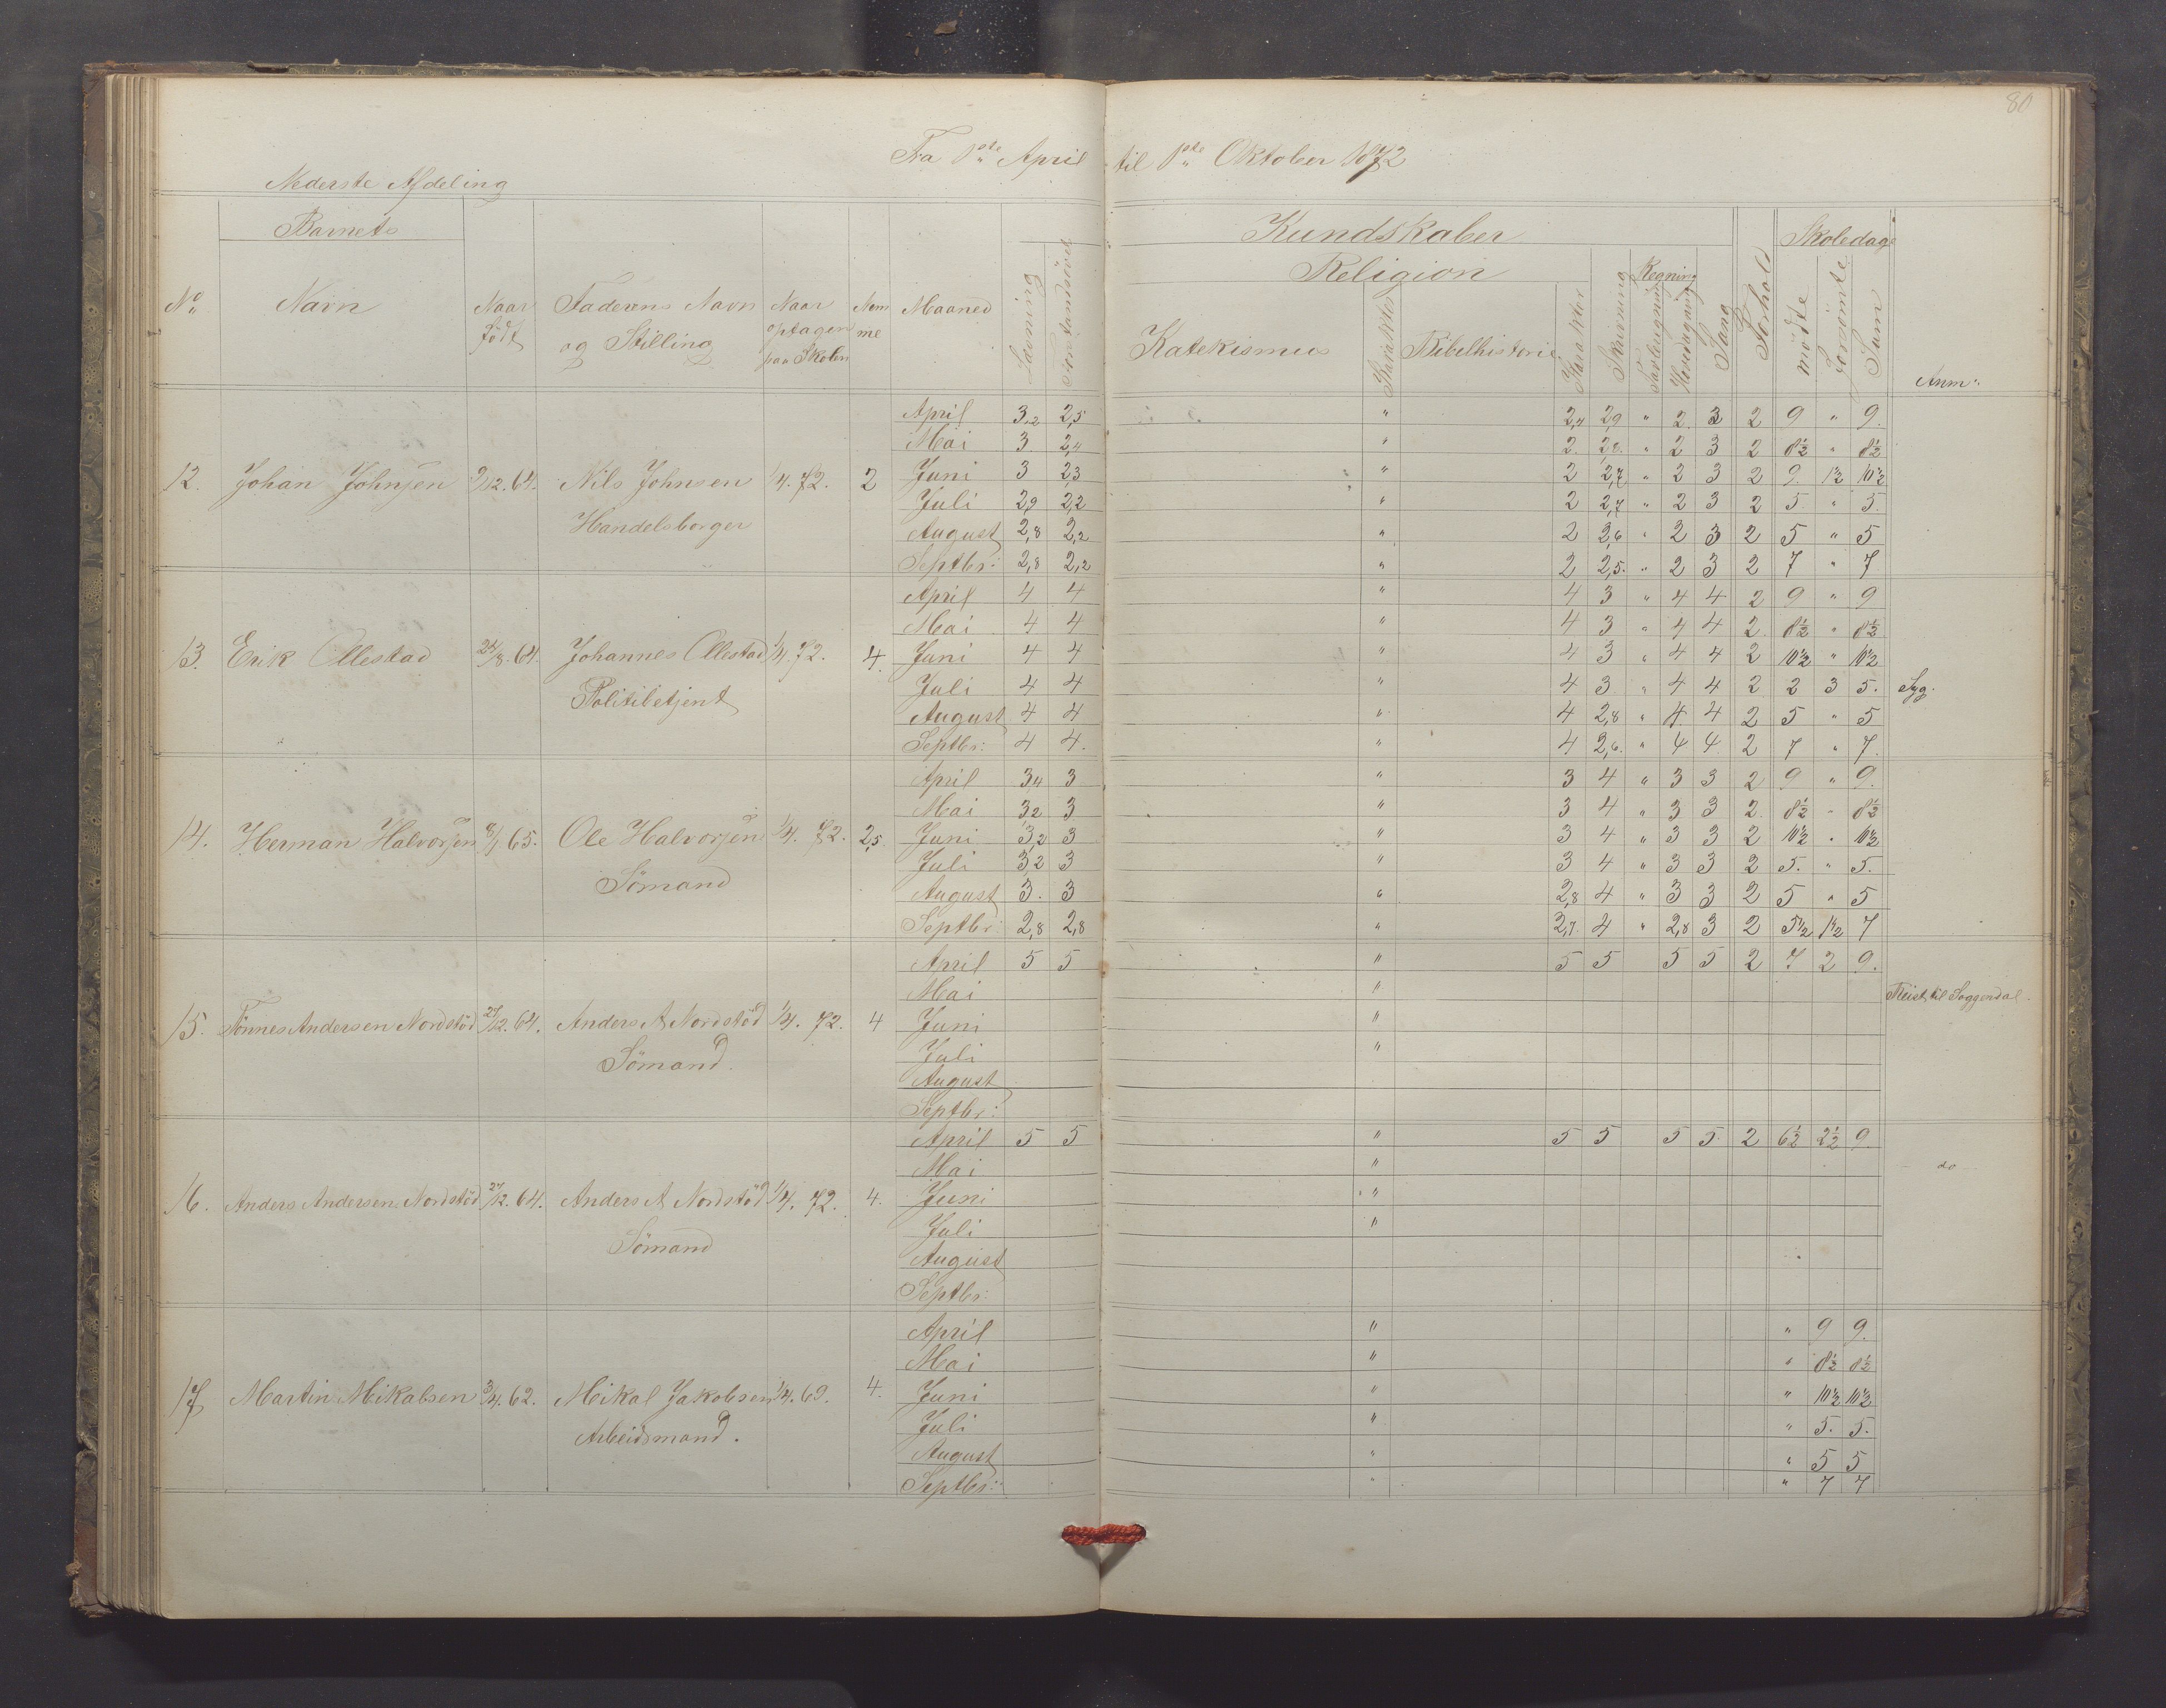 80
Fra 1ste April til 1ste Oktober 1872
Nederste Afdeling
Barnets
Kundskaber
Skoledage
Religion
Regning
No Navn Naar født Faderens Navn og Stilling Naar optagen paa Skolen Nemme Maaned Læsning Forstandsøvel Katekismus Karakter Bibelhistorie Karakter Skrivning Tavleregning Hovedregning Sang Forhold mødte forsømte Sum Anm:
April 3,2 2,5 " 2,4 2,9 " 2 3 2 9 " 9.
Mai 3 2,4 " 2. 2,8. " 2 3 2 8½ " 8½
12. Johan Johnsen 9/12.64. Nils Johnsen 1/4.72. 2 Juni 3 2,3 " 2 2,7 " 2 3 2 9. 1½ 10½
Juli 2,9 2,2 " 2 2,7 " 2 3 2 5. " 5.
Handelsborger August 2,8 2,2 " 2 2,6 " 2 3 2 5 " 5
Septbr: 2,8 2,2 " 2 2,5. " 2 3 2 7 " 7
April 4 4 " 4 3 " 4 4 2 9 " 9
Mai 4 4 " 4 3 " 4 4 2. 8½ " 8½
13. Erik Ollestad 24/8.64. Johannes Ollestad 1/4.72. 4. Juni 4 4 " 4 3 " 4 4 2 10½ " 10½
Politibetjent Juli 4 4 " 4 3 " 4 4 2 2 3 5. Syg.
August 4 4 " 4 2,8 " 4 4 2 5 " 5
Septbr: 4 4. " 4 2,6. " 4 4 2 7 " 7.
April 3,4 3 " 3 4 " 3 3 2 9 " 9.
Mai 3,2 3 " 3 4 " 3 3 2. 8½ " 8½
14. Herman Halvorsen 8/1 65. Ole Halvorsen 1/4. 72. 2,5. Juni 3,2 3 " 3 4 " 3 3 2 10½ " 10½
Juli 3,2 3 " 3 4 " 3 3 2 5. " 5.
Sömand August 3. 3 " 2,8 4 " 3 3 2 5 " 5
Septbr: 2,8 2,8 " 2,7. 4 " 2,8 3 2 5½ 1½ 7
April 5 5 " 5 5 5 5 2 7 2 9.
Mai " Reist til Soggendal.
15. Tönnes Andersen Nordstöd 27/12.64. Anders A Nordstöd 1/4. 72. 4 Juni "
Sömand. Juli "
August
Septbr:
April 5 5 " 5 5 5 5 2 6½ 2½ 9
Mai " do
16. Anders Andersen Nordstöd 27/12.64. Anders A Nordstöd 1/4. 72. 4. Juni "
Juli "
Sömand August
Septbr:
April " " 9 9.
Mai " " 8½ 8½
17 Martin Mikalsen 3/4.62. Mikal Jakobsen 1/4.69. 4. Juni " " 10½ 10½
Arbeidsmand. Juli " " 5. 5.
August " " 5 5
Septbr: " " 7 7